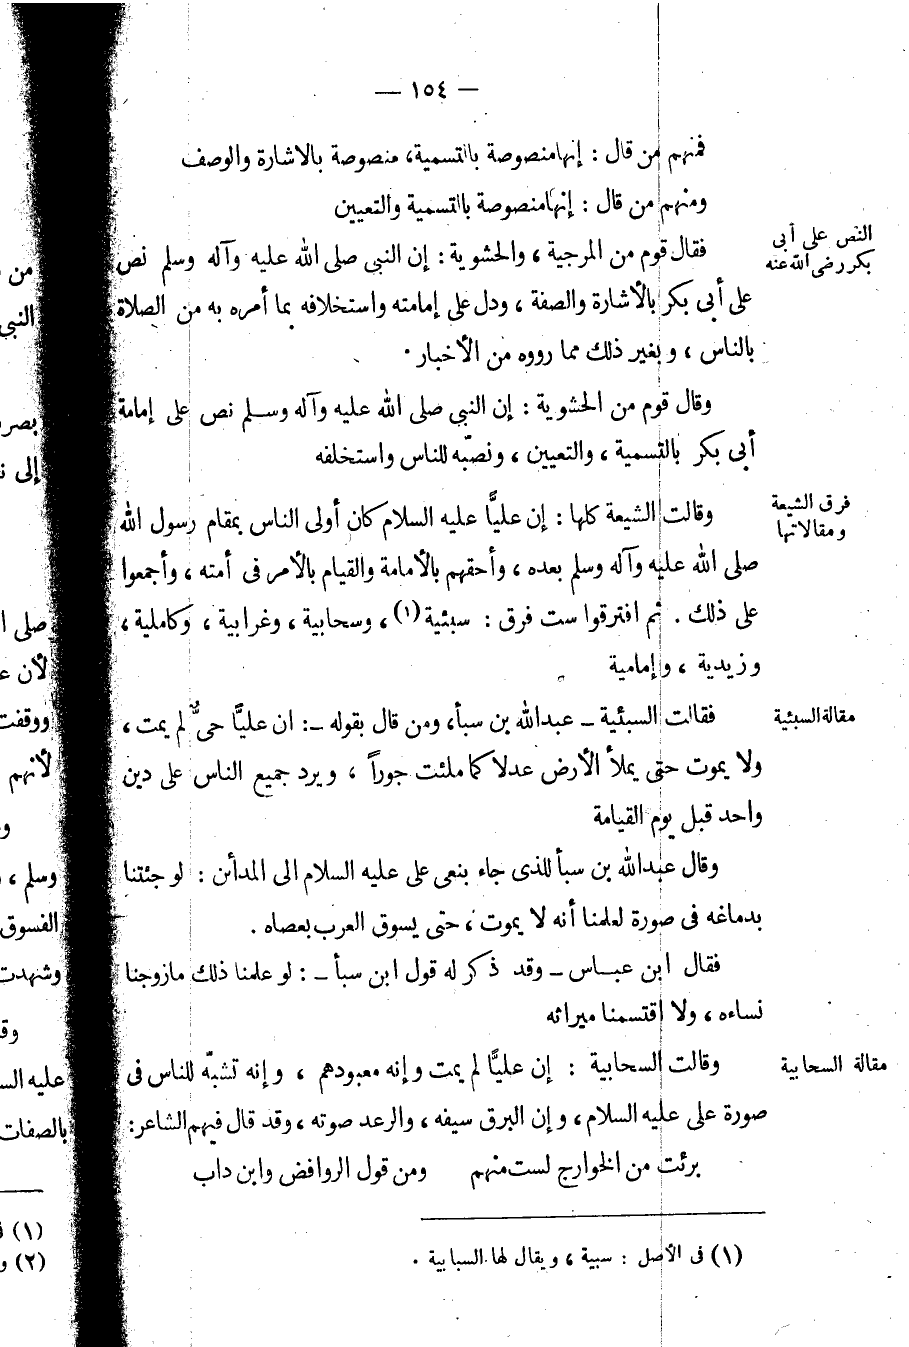 — ١٥٤ —
فمنهم من قال : إنها منصوصة بالتسمية، منصوصة بالاشارة والوصف
ومنهم من قال : إنها منصوصة بالتسمية والتعيين
النص على أبى
بكر رضى الله عنه
فقال قوم من المرجية ، والحشوية : إن النبى صلى الله عليه وآله وسلم نص
على أبى بكر بالأشارة والصفة ، ودل على إمامته واستخلافه بما أمره به من الصلاة
بالناس ، و بغير ذلك مما رووه من الأخبار .
وقال قوم من الحشوية : إن النبي صلى الله عليه وآله وسلم نص على إمامة
أبى بكر بالتسمية ، والتعيين ، ونصبّه للناس واستخلفه
فرق الشيعة
ومقالاتها
وقالت الشيعة كلها : إن عليًّا عليه السلام كان أولى الناس بمقام رسول الله
صلى الله عليه وآله وسلم بعده ، وأحقهم بالأمامة والقيام بالأمر فى أمته ، وأجمعوا
على ذلك . ثم افترقوا ست فرق : سبئية (١) ، وسحابية ، وغرابية ، وكاملية ،
وزيدية ، وإمامية
مقالة السبئية
فقالت السبئية – عبدالله بن سبأ، ومن قال بقوله –: ان عليًّا حىٌّ لم يمت ،
ولا يموت حتى يملأ الأرض عدلا كما ملئت جوراً ، ويرد جميع الناس على دين
واحد قبل يوم القيامة
وقال عبدالله بن سبأ للذى جاء بنعى على عليه السلام الى المدأن : لو جئتنا
بدماغه فى صورة لعلمنا أنه لا يموت ، حتى يسوق العرب بعصاه .
فقال ابن عباس – وقد ذكر له قول ابن سبأ – : لو علمنا ذلك مازوجنا
نساءه ، ولا اقتسمنا ميراثه
مقالة السحابية
وقالت السحابية : إن عليًّا لم يمت وإنه معبودهم ، وإنه تشبّه للناس فى
صورة على عليه السلام ، وإن البرق سيفه ، والرعد صوته ، وقد قال فيهم الشاعر:
برئت من الخوارج لست منهم ومن قول الروافض وابن داب
(١) فى الأصل : سبية ، ويقال لها السبابية .
من
النبى
بصر
إلى
صلى
لأن
ووقفت
لأنهم
وسلم ،
الفسوق
وشهدت
عليه
بالصفات
(١)
(٢)